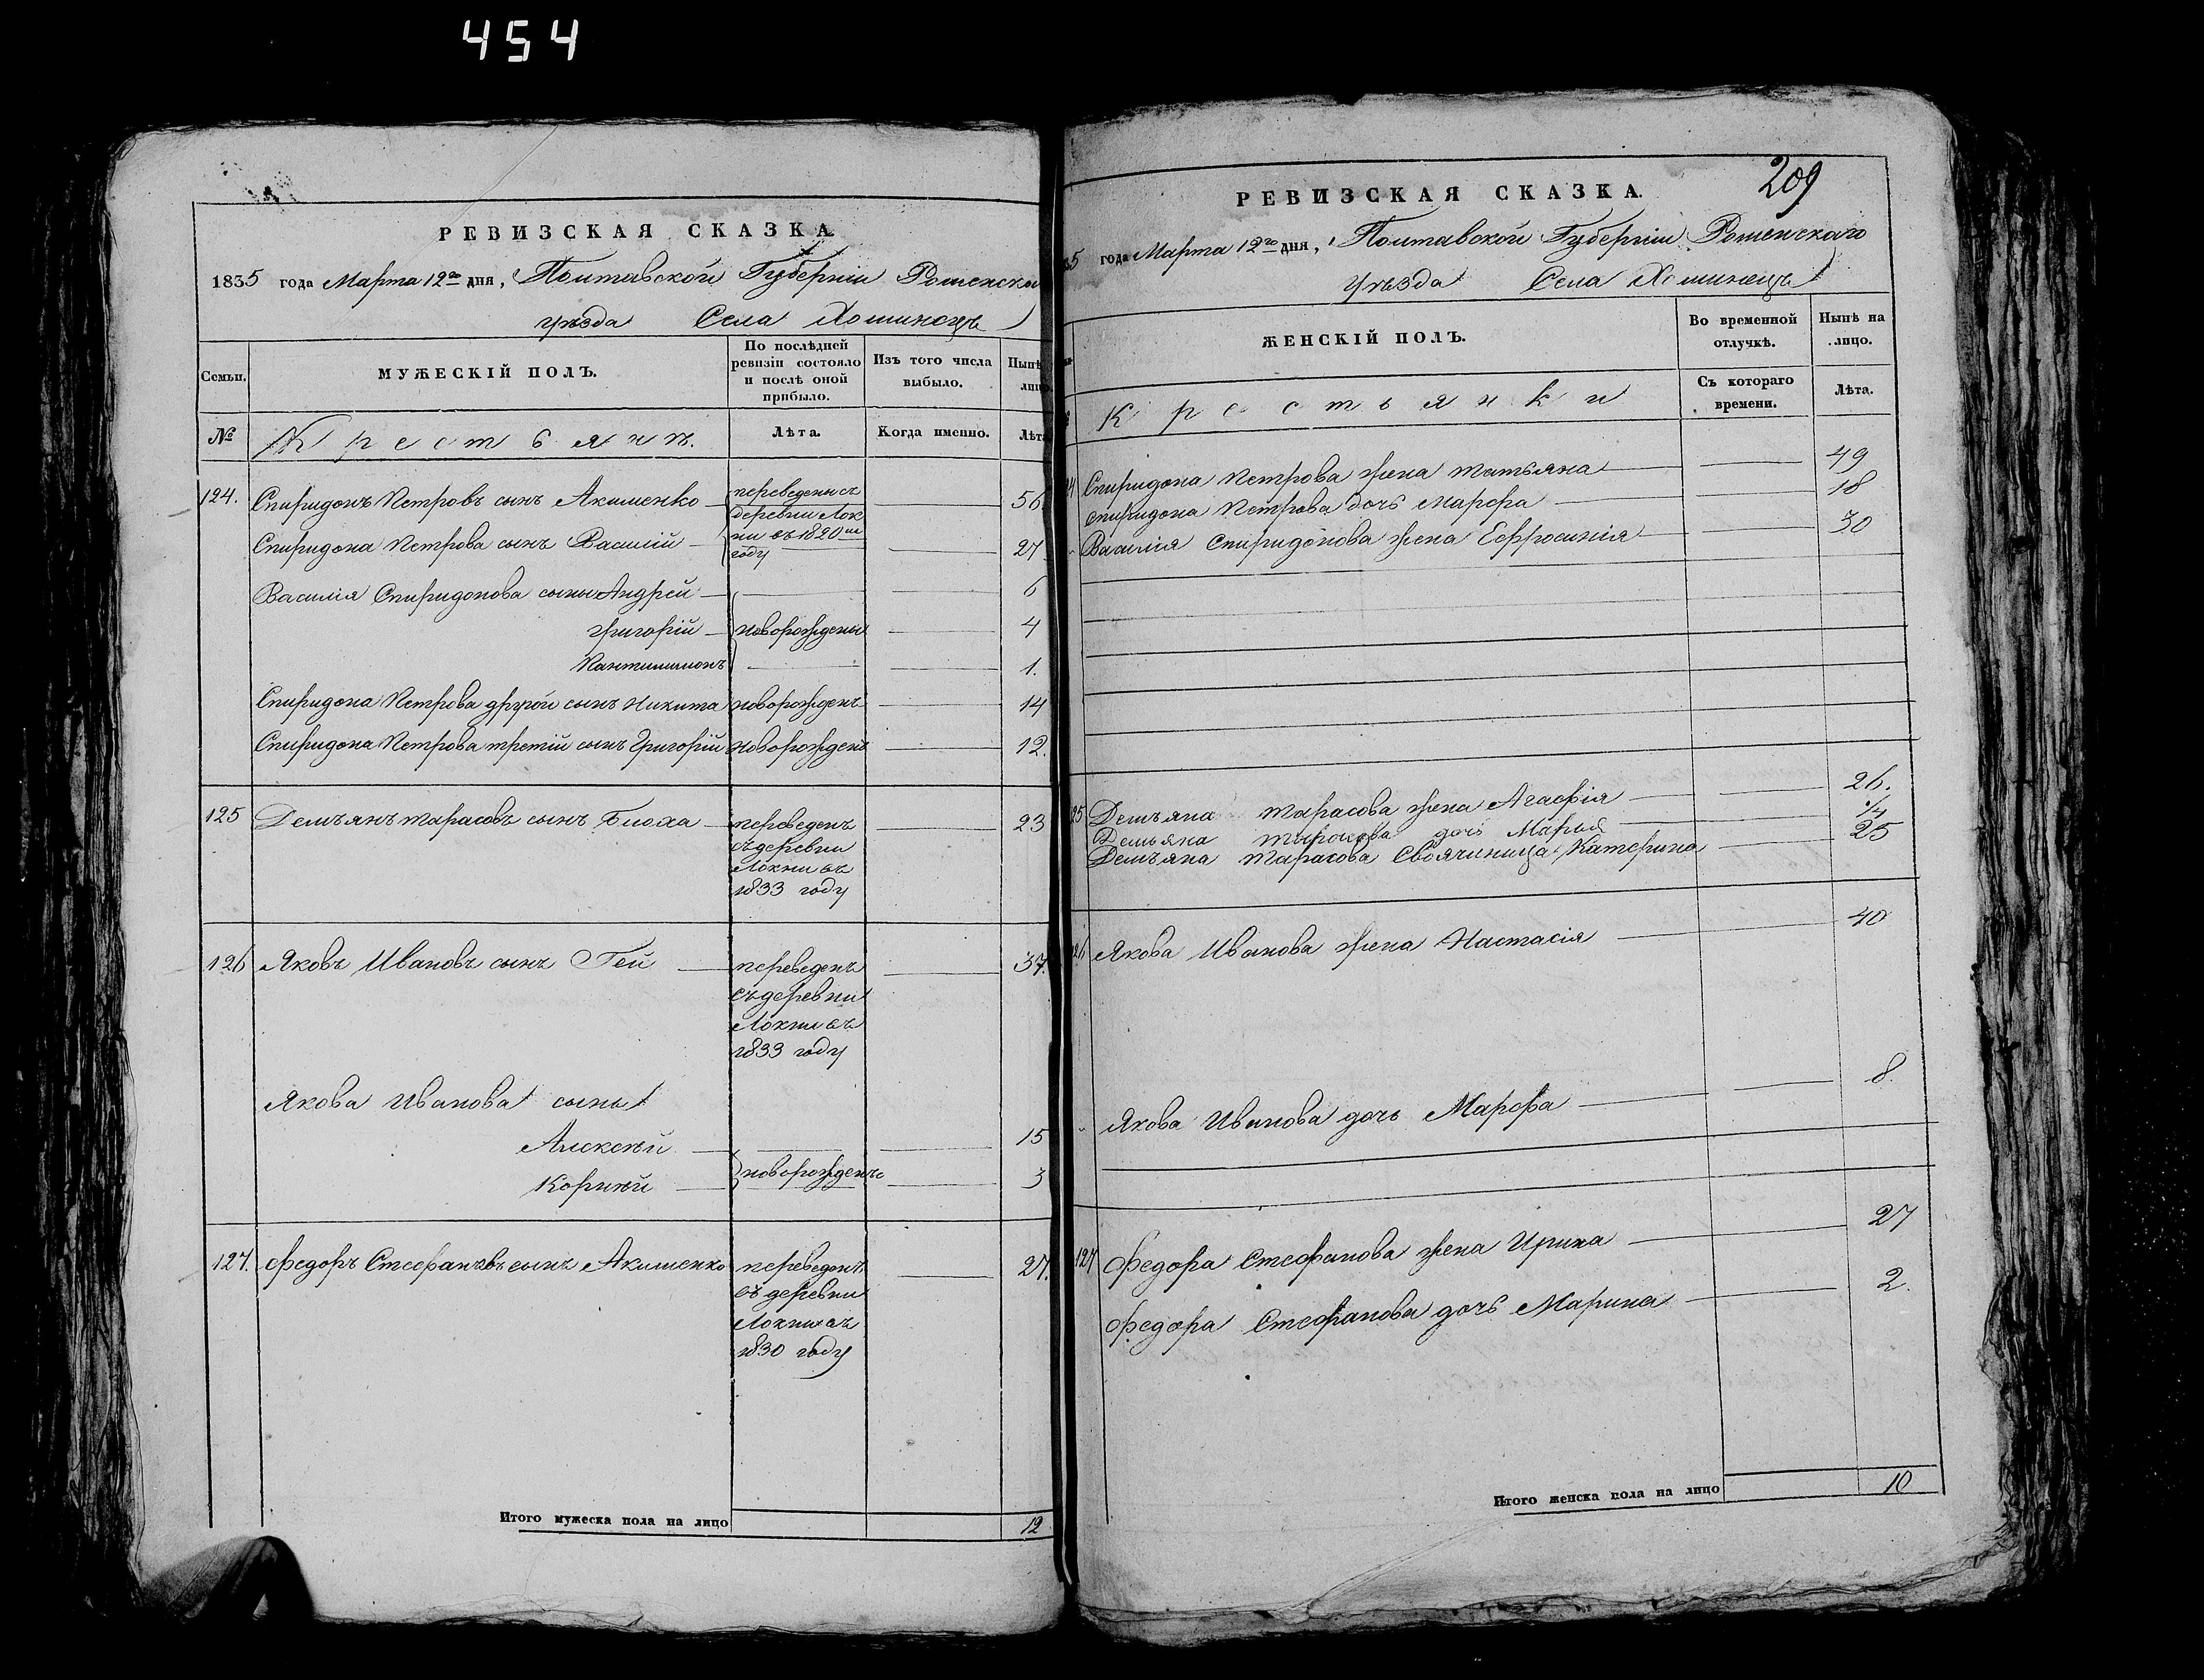 454
РЕВИЗСКАЯ СКАЗКА
1835 года Марта 12го дня, Полтавской Губерніи Роменска
уѣзда Села Хоминецъ
Семьи.
МУЖЕСКІЙ ПОЛЪ.
По послѣдней
ревизіи состояло
и послѣ оной
прибыло.
Изъ того числа
выбыло.
Нынѣ
лицо
№
Крестьянъ.
Лѣта.
Когда именно.
Лѣта
124. Спиридонъ Петровъ сынъ Акименко переведены съ 56
деревни Лок
ни въ 1820м
Спиридона Петрова сынъ Василій году 27
Василія Спиридонова сыны Андрей 6
Григорій новорождены 4
Пантилимонъ 1.
Спиридона Петрова другой сынъ Никита новорожденъ 14
Спиридона Петрова третій сынъ Григорій новорожденъ 12.
125 Демъянъ Тарасовъ сынъ Блоха переведенъ 23
съ деревни
Локни въ
1833 году
126 Яковъ Ивановъ сынъ Гей переведенъ 37.
съ деревни
Локни въ
1833 году
Якова Иванова сыны
Алексѣй 15
новорожденъ
Корнѣй 3
127. Федоръ Стефановъ сынъ Акименко переведенъ 27.
съ деревни
Локни въ
1830 году
Итого мужеска пола на лицо 12
209
РЕВИЗСКАЯ СКАЗКА.
5 года Марта 12го дня, Полтавской Губерніи Роменскаго
Уѣзда Села Хоминецъ
ЖЕНСКІЙ ПОЛЪ.
Во временной
отлучкѣ.
Нынѣ на
лицо.
Крестьянки
Съ котораго
времени.
Лѣта.
4 Спиридона Петрова жена Татьяна 49
Спиридона Петрова дочь Марфа 18
Василія Спиридонова жена Ефросинія 30
25 Демъяна Тарасова жена Агафія 26.
Демьяна Тарасова дочь Марья 1/4
Демъяна Тарасова Своячиница Катерина 25
26 Якова Иванова жена Настасія 40
Якова Иванова дочь Марфа 8.
127 Федора Стефанова жена Ирина 27
Федора Стефанова дочь Марина 2.
Итого женска пола на лицо 10